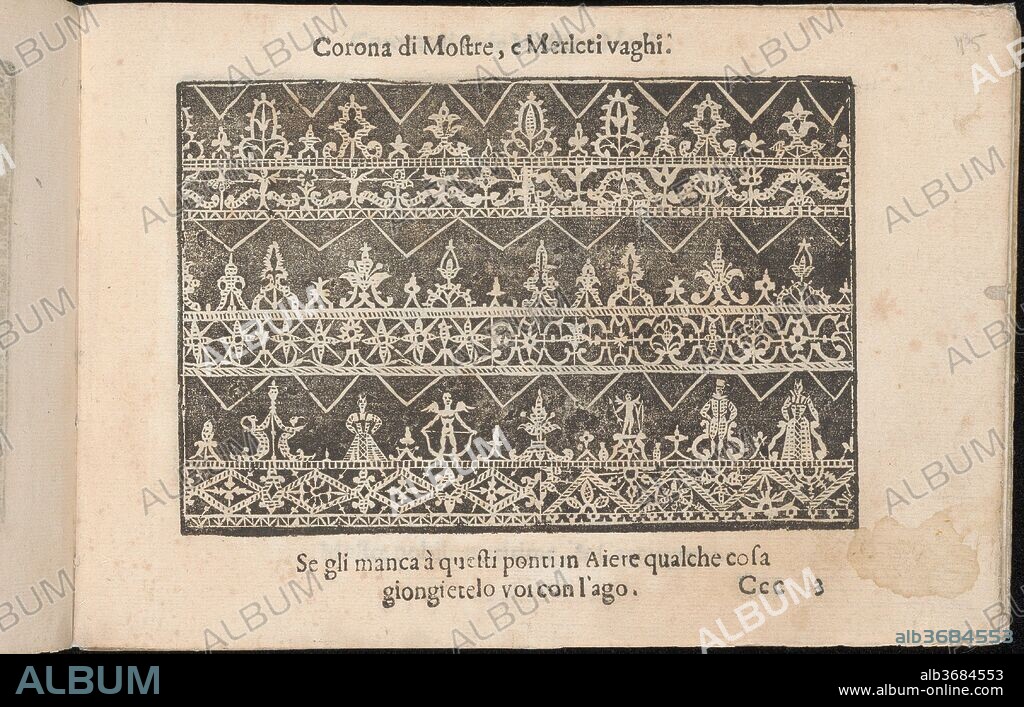 Corona di Moſtre, e Merleti vaghi.
Se gli manca à queſti ponti in Aiere qualche coſa
giongietelo voi con l'ago.
Ccc 3
alb3684553
ALBUM
alb3684553
www.album-online.com